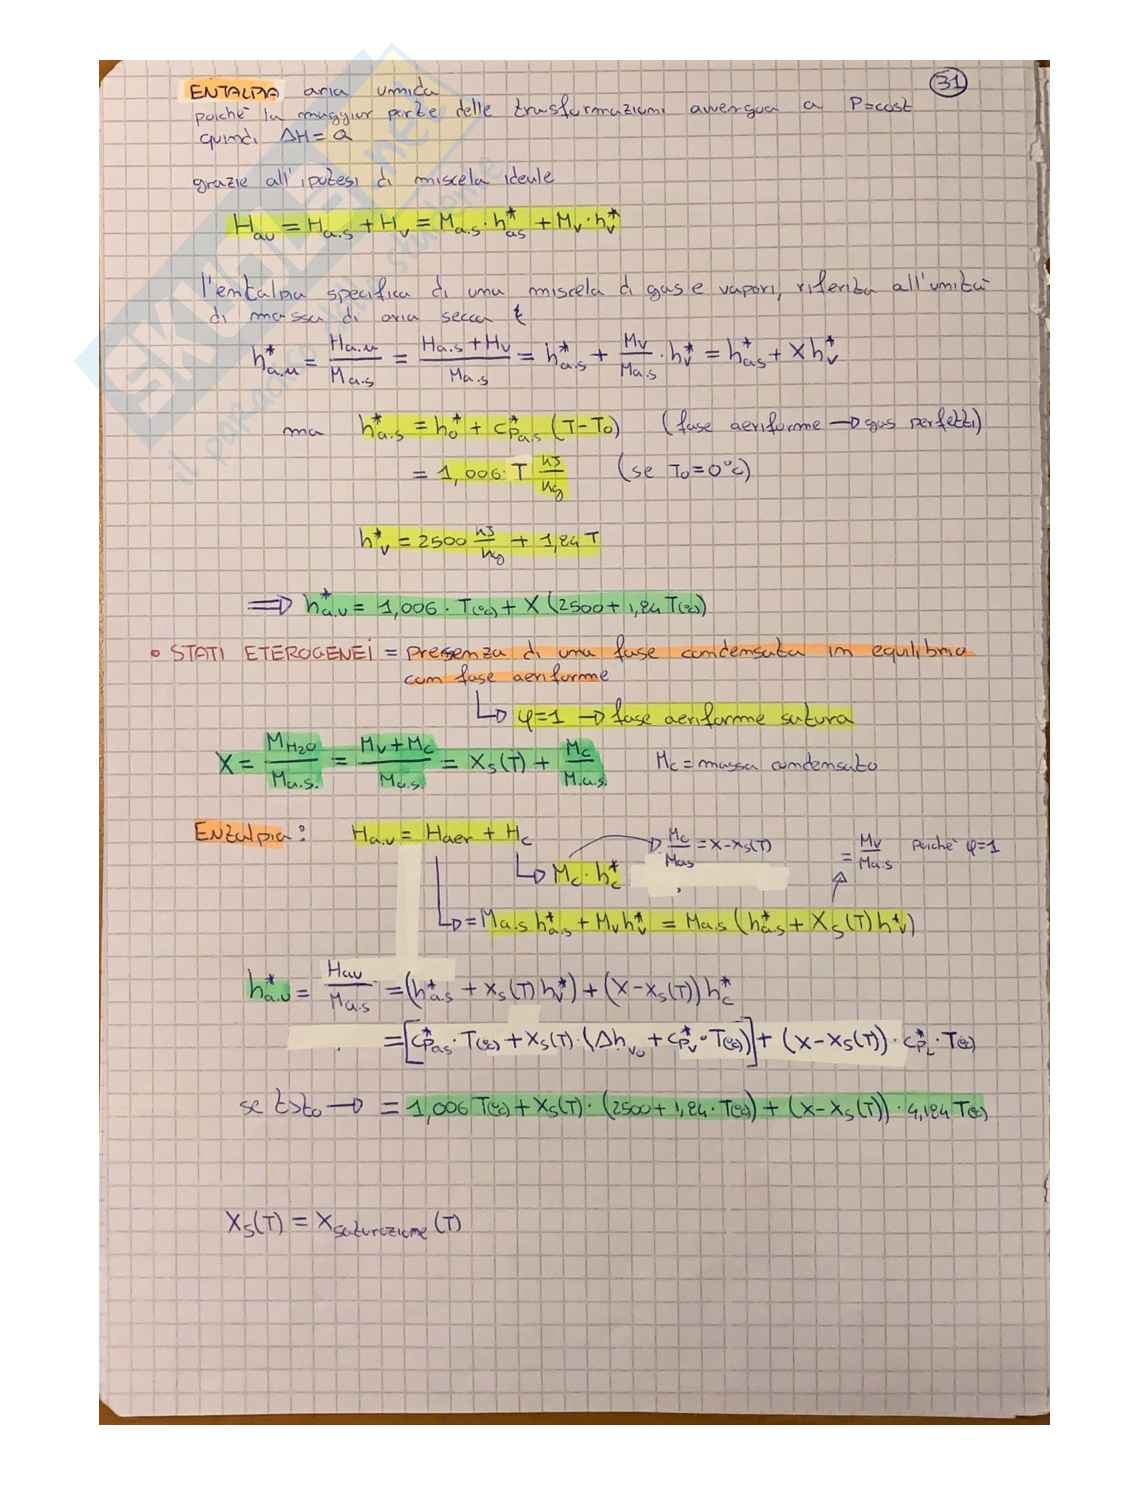 31
ENTALPIA aria umida
poiché la maggior parte delle trasformazioni avvengua a P=cost
quindi ΔH = Q
grazie all'ipotesi di miscela ideale
Hau = Ha.s + Hv = Ma.s · h*as + Mv · h*v
l'entalpia specifica di una miscela di gas e vapori, riferita all'unità
di massa di aria secca è
h*a.u = Ha.u / Ma.s = (Ha.s + Hv) / Ma.s = h*a.s + Mv / Ma.s · h*v = h*a.s + X h*v
ma h*a.s = h*o + cp*a.s (T - To) (fase aeriforme → gas perfetti)
= 1,006 · T kJ/kg (se To = 0°C)
h*v = 2500 kJ/kg + 1,84 T
⇒ h*a.u = 1,006 · T(°C) + X (2500 + 1,84 T(°C))
• STATI ETEROGENEI = presenza di una fase condensata in equilibrio
com fase aeriforme
↳ φ=1 → fase aeriforme satura
X = MH2O / Ma.s. = (Mv + Mc) / Ma.s = Xs(T) + Mc / Ma.s. Mc = massa condensato
Entalpia: Ha.u = Haer + Hc
↳ Mc · h*c → Mc / Mas = X - Xs(T) = Mv / Ma.s perché φ=1
↳ = Ma.s h*a.s + Mv h*v = Ma.s (h*a.s + Xs(T) h*v)
h*a.u = Hau / Ma.s = (h*as + Xs(T) h*v) + (X - Xs(T)) h*c
= [cp*as · T(°C) + Xs(T) · (Δhvo + cp*v · T(°C))] + (X - Xs(T)) · cp*L · T(°C)
se t>to → = 1,006 T(°C) + Xs(T) · (2500 + 1,84 · T(°C)) + (X - Xs(T)) · 4,184 T(°C)
Xs(T) = Xsaturazione (T)
SKUOLA.net